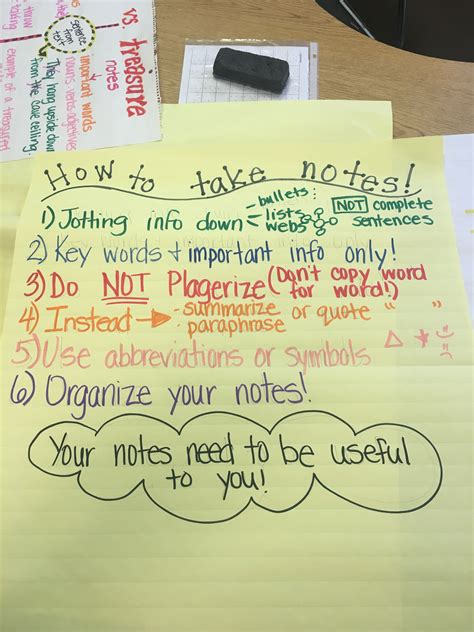 vs. treasure
notes
important words
nouns, verbs, adjectives
sentence
from
text
They hang upside down
from the cave ceiling.
throw
example of a treasured
How to take notes!
1) Jotting info down bullets: lists webs NOT complete sentences
2) Key words + important info only!
3) Do NOT Plagerize (Don't copy word
for word!)
4) Instead → - summarize or quote " "
- paraphrase
5) Use abbreviations or symbols △ ★ ☺
6) Organize your notes!
Your notes need to be useful
to you!